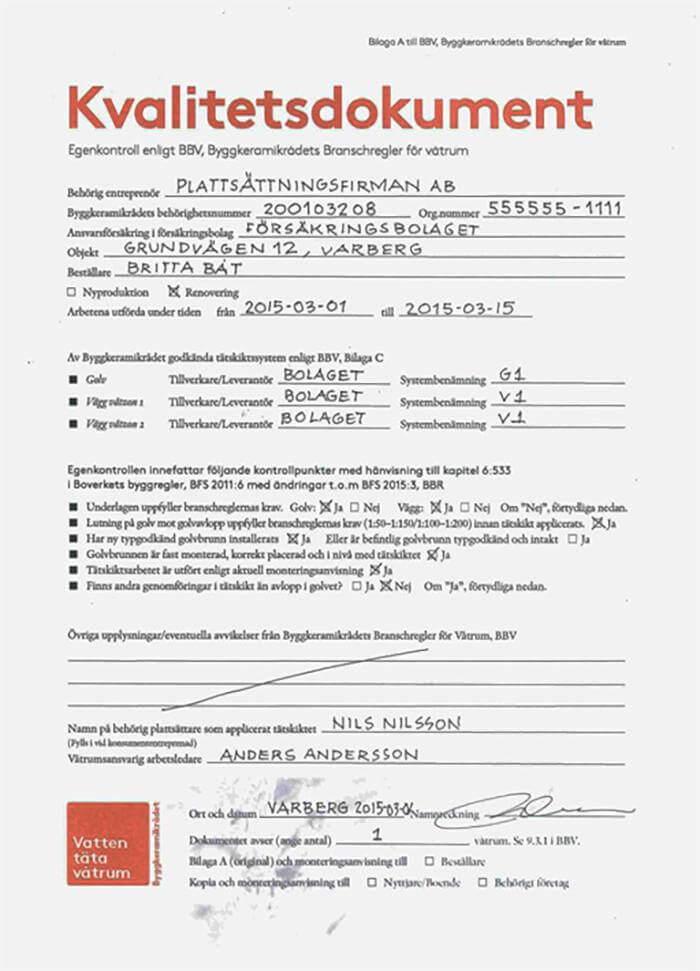 Bilaga A till BBV, Byggkeramikrådets Branschregler för våtrum
Kvalitetsdokument
Egenkontroll enligt BBV, Byggkeramikrådets Branschregler för våtrum
Behörig entreprenör PLATTSÄTTNINGSFIRMAN AB
Byggkeramikrådets behörighetsnummer 200103208 Org.nummer 555555-1111
Ansvarsförsäkring i försäkringsbolag FÖRSÄKRINGSBOLAGET
Objekt GRUNDVÄGEN 12, VARBERG
Beställare BRITTA BÅT
Nyproduktion Renovering
Arbetena utförda under tiden från 2015-03-01 till 2015-03-15
Av Byggkeramikrådet godkända tätskiktssystem enligt BBV, Bilaga C
Golv Tillverkare/Leverantör BOLAGET Systembenämning G1
Vägg våtzon 1 Tillverkare/Leverantör BOLAGET Systembenämning V1
Vägg våtzon 2 Tillverkare/Leverantör BOLAGET Systembenämning V1
Egenkontrollen innefattar följande kontrollpunkter med hänvisning till kapitel 6:533
i Boverkets byggregler, BFS 2011:6 med ändringar t.o.m BFS 2015:3, BBR
Underlagen uppfyller branschreglernas krav. Golv: Ja Nej Vägg: Ja Nej Om "Nej", förtydliga nedan.
Lutning på golv mot golvavlopp uppfyller branschreglernas krav (1:50–1:150/1:100–1:200) innan tätskikt applicerats. Ja
Har ny typgodkänd golvbrunn installerats Ja Eller är befintlig golvbrunn typgodkänd och intakt Ja
Golvbrunnen är fast monterad, korrekt placerad och i nivå med tätskiktet Ja
Tätskiktsarbetet är utfört enligt aktuell monteringsanvisning Ja
Finns andra genomföringar i tätskikt än avlopp i golvet? Ja Nej Om "Ja", förtydliga nedan.
Övriga upplysningar/eventuella avvikelser från Byggkeramikrådets Branschregler för Våtrum, BBV
Namn på behörig plattsättare som applicerat tätskiktet NILS NILSSON
(Fylls i vid konsumententreprenad)
Våtrumsansvarig arbetsledare ANDERS ANDERSSON
Ort och datum VARBERG 2015-03-01 Namnteckning
Dokumentet avser (ange antal) 1 våtrum. Se 9.3.1 i BBV.
Bilaga A (original) och monteringsanvisning till Beställare
Kopia och monteringsanvisning till Nyttjare/Boende Behörigt företag
Vatten
täta
våtrum
Byggkeramikrådet